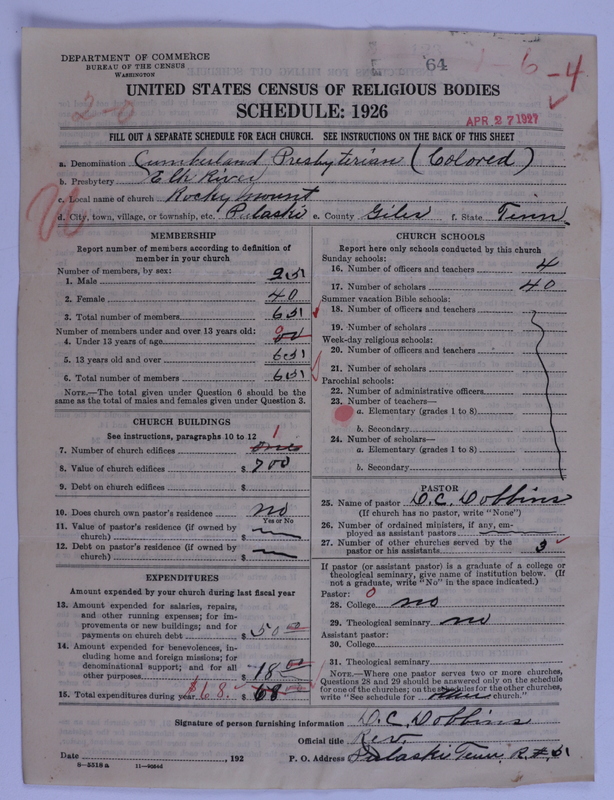 64
1-6-4
DEPARTMENT OF COMMERCE
BUREAU OF THE CENSUS
WASHINGTON
2-0
UNITED STATES CENSUS OF RELIGIOUS BODIES
SCHEDULE: 1926
APR 27 1927
FILL OUT A SEPARATE SCHEDULE FOR EACH CHURCH. SEE INSTRUCTIONS ON THE BACK OF THIS SHEET
a. Denomination Cumberland Presbyterian (Colored)
b. Presbytery Elk River
c. Local name of church Rocky mount
d. City, town, village, or township, etc. Pulaski e. County Giles f. State Tenn
MEMBERSHIP
Report number of members according to definition of
member in your church
Number of members, by sex:
1. Male 25
2. Female 40
3. Total number of members 65
Number of members under and over 13 years old:
4. Under 13 years of age 0
5. 13 years old and over 65
6. Total number of members 65
NOTE.—The total given under Question 6 should be
the same as the total of males and females given under Question 3.
CHURCH BUILDINGS
See instructions, paragraphs 10 to 12
7. Number of church edifices one 1
8. Value of church edifices $ 700
9. Debt on church edifices $
10. Does church own pastor's residence? no
Yes or No
11. Value of pastor's residence (if owned by
church) $
12. Debt on pastor's residence (if owned by
church) $
EXPENDITURES
Amount expended by your church during last fiscal year
13. Amount expended for salaries, repairs,
and other running expenses; for im-
provements or new buildings; and for
payments on church debt $ 50 00
14. Amount expended for benevolences, in-
cluding home and foreign missions; for
denominational support; and for all
other purposes $ 18 00
15. Total expenditures during year $68. $ 68
CHURCH SCHOOLS
Report here only schools conducted by this church
Sunday schools:
16. Number of officers and teachers 4
17. Number of scholars 40
Summer vacation Bible schools:
18. Number of officers and teachers
19. Number of scholars
Week-day religious schools:
20. Number of officers and teachers
21. Number of scholars
Parochial schools:
22. Number of administrative officers
23. Number of teachers—
a. Elementary (grades 1 to 8)
b. Secondary
24. Number of scholars—
a. Elementary (grades 1 to 8)
b. Secondary
PASTOR
25. Name of pastor D.C. Dobbins
(If church has no pastor, write "None")
26. Number of ordained ministers, if any, em-
ployed as assistant pastors
27. Number of other churches served by the
pastor or his assistants 3
If pastor (or assistant pastor) is a graduate of a college or
theological seminary, give name of institution below. (If
not a graduate, write "No" in the space indicated.)
Pastor: 0
28. College no
29. Theological seminary no
Assistant pastor:
30. College
31. Theological seminary
NOTE.—Where one pastor serves two or more churches,
Questions 28 and 29 should be answered only on the schedule
for one of the churches; on the schedules for the other churches,
write "See schedule for church."
Signature of person furnishing information D.C. Dobbins
Official title Rev.
Date , 192 P. O. Address Pulaski Tenn. R.F.D.
8—5518 a